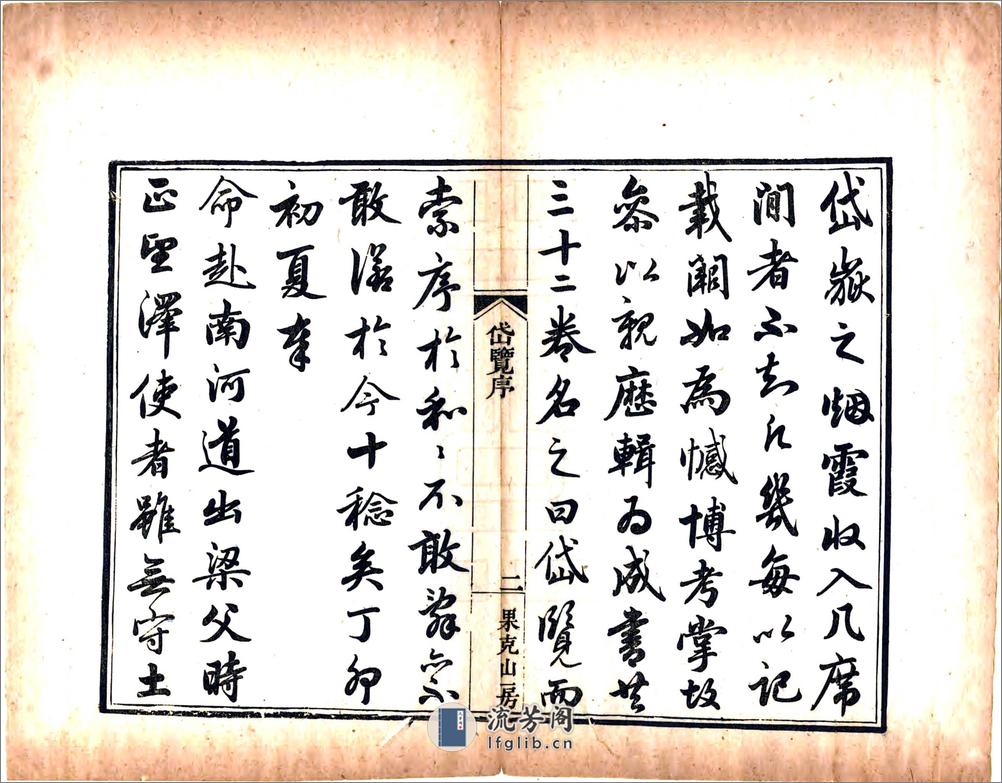 岱嶽之烟霞収入几席
間者不知凡幾每以記
載闕如為憾博考掌故
叅以親歷輯為成書共
三十二卷名之曰岱覽而
岱覽序
二
果克山房
索序於和〻不敢辭亦不
敢諾於今十稔矣丁卯
初夏奉
命赴南河道出梁父時
正聖澤使者雖無守土
流芳阁
lfglib.cn